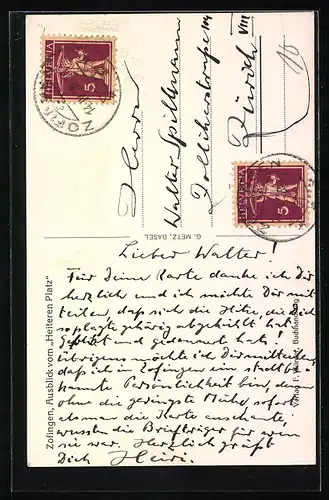 HELVETIA 5
ZOFINGEN
Herrn
Walter Spillmann
Zollikerstrasse 104
Zürich VIII
10
HELVETIA 5
G. METZ, BASEL
Zofingen, Ausblick vom „Heiteren Platz“
Verlag F.
Lieber Walter!
Für Deine Karte danke ich Dir
herzlich und ich möchte Dir mit-
teilen, daß sich die Hitze, die Dich
so plagte gehörig abgekühlt hat.
Geblitzt und gedonnert hats!
Übrigens möchte ich Dir mitteilen,
daß ich in Zofingen ein stadtbe-
kannte Persönlichkeit bin, denn
ohne die geringste Mühe, sofort
als man die Karte anschaute,
wussten die Briefträger für wen
sie war. Herzlich grüßt
Dich Heiri.